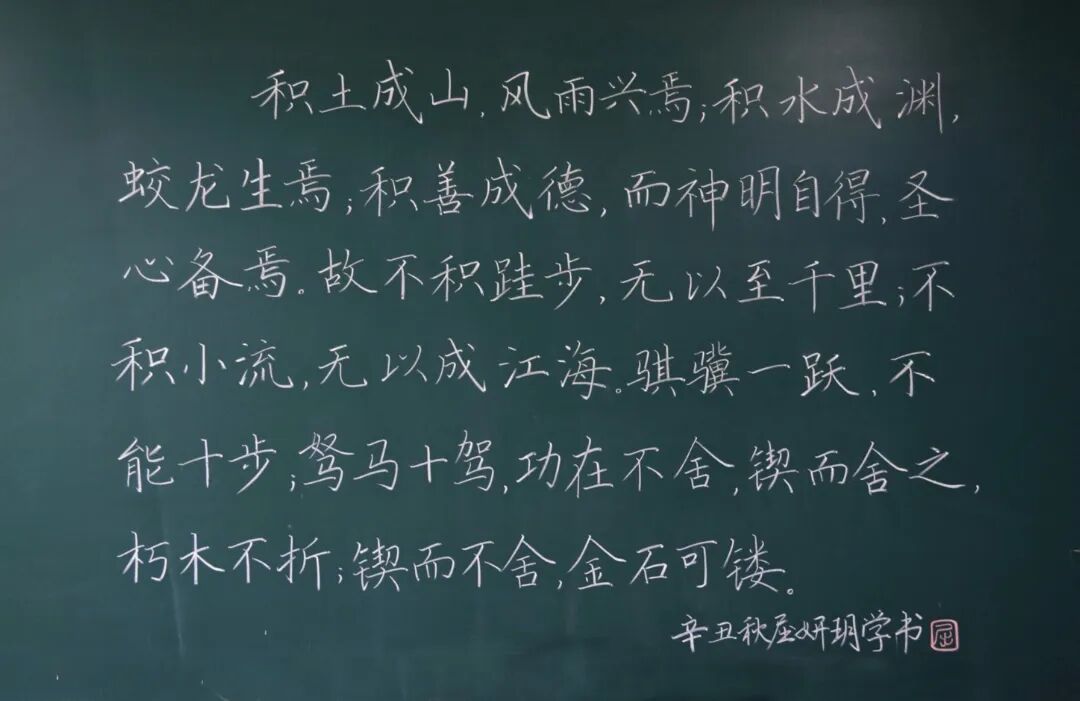 积土成山,风雨兴焉;积水成渊,
蛟龙生焉;积善成德,而神明自得,圣
心备焉。故不积跬步,无以至千里;不
积小流,无以成江海。骐骥一跃,不
能十步;驽马十驾,功在不舍,锲而舍之,
朽木不折;锲而不舍,金石可镂。
辛丑秋屈妍玥学书
屈